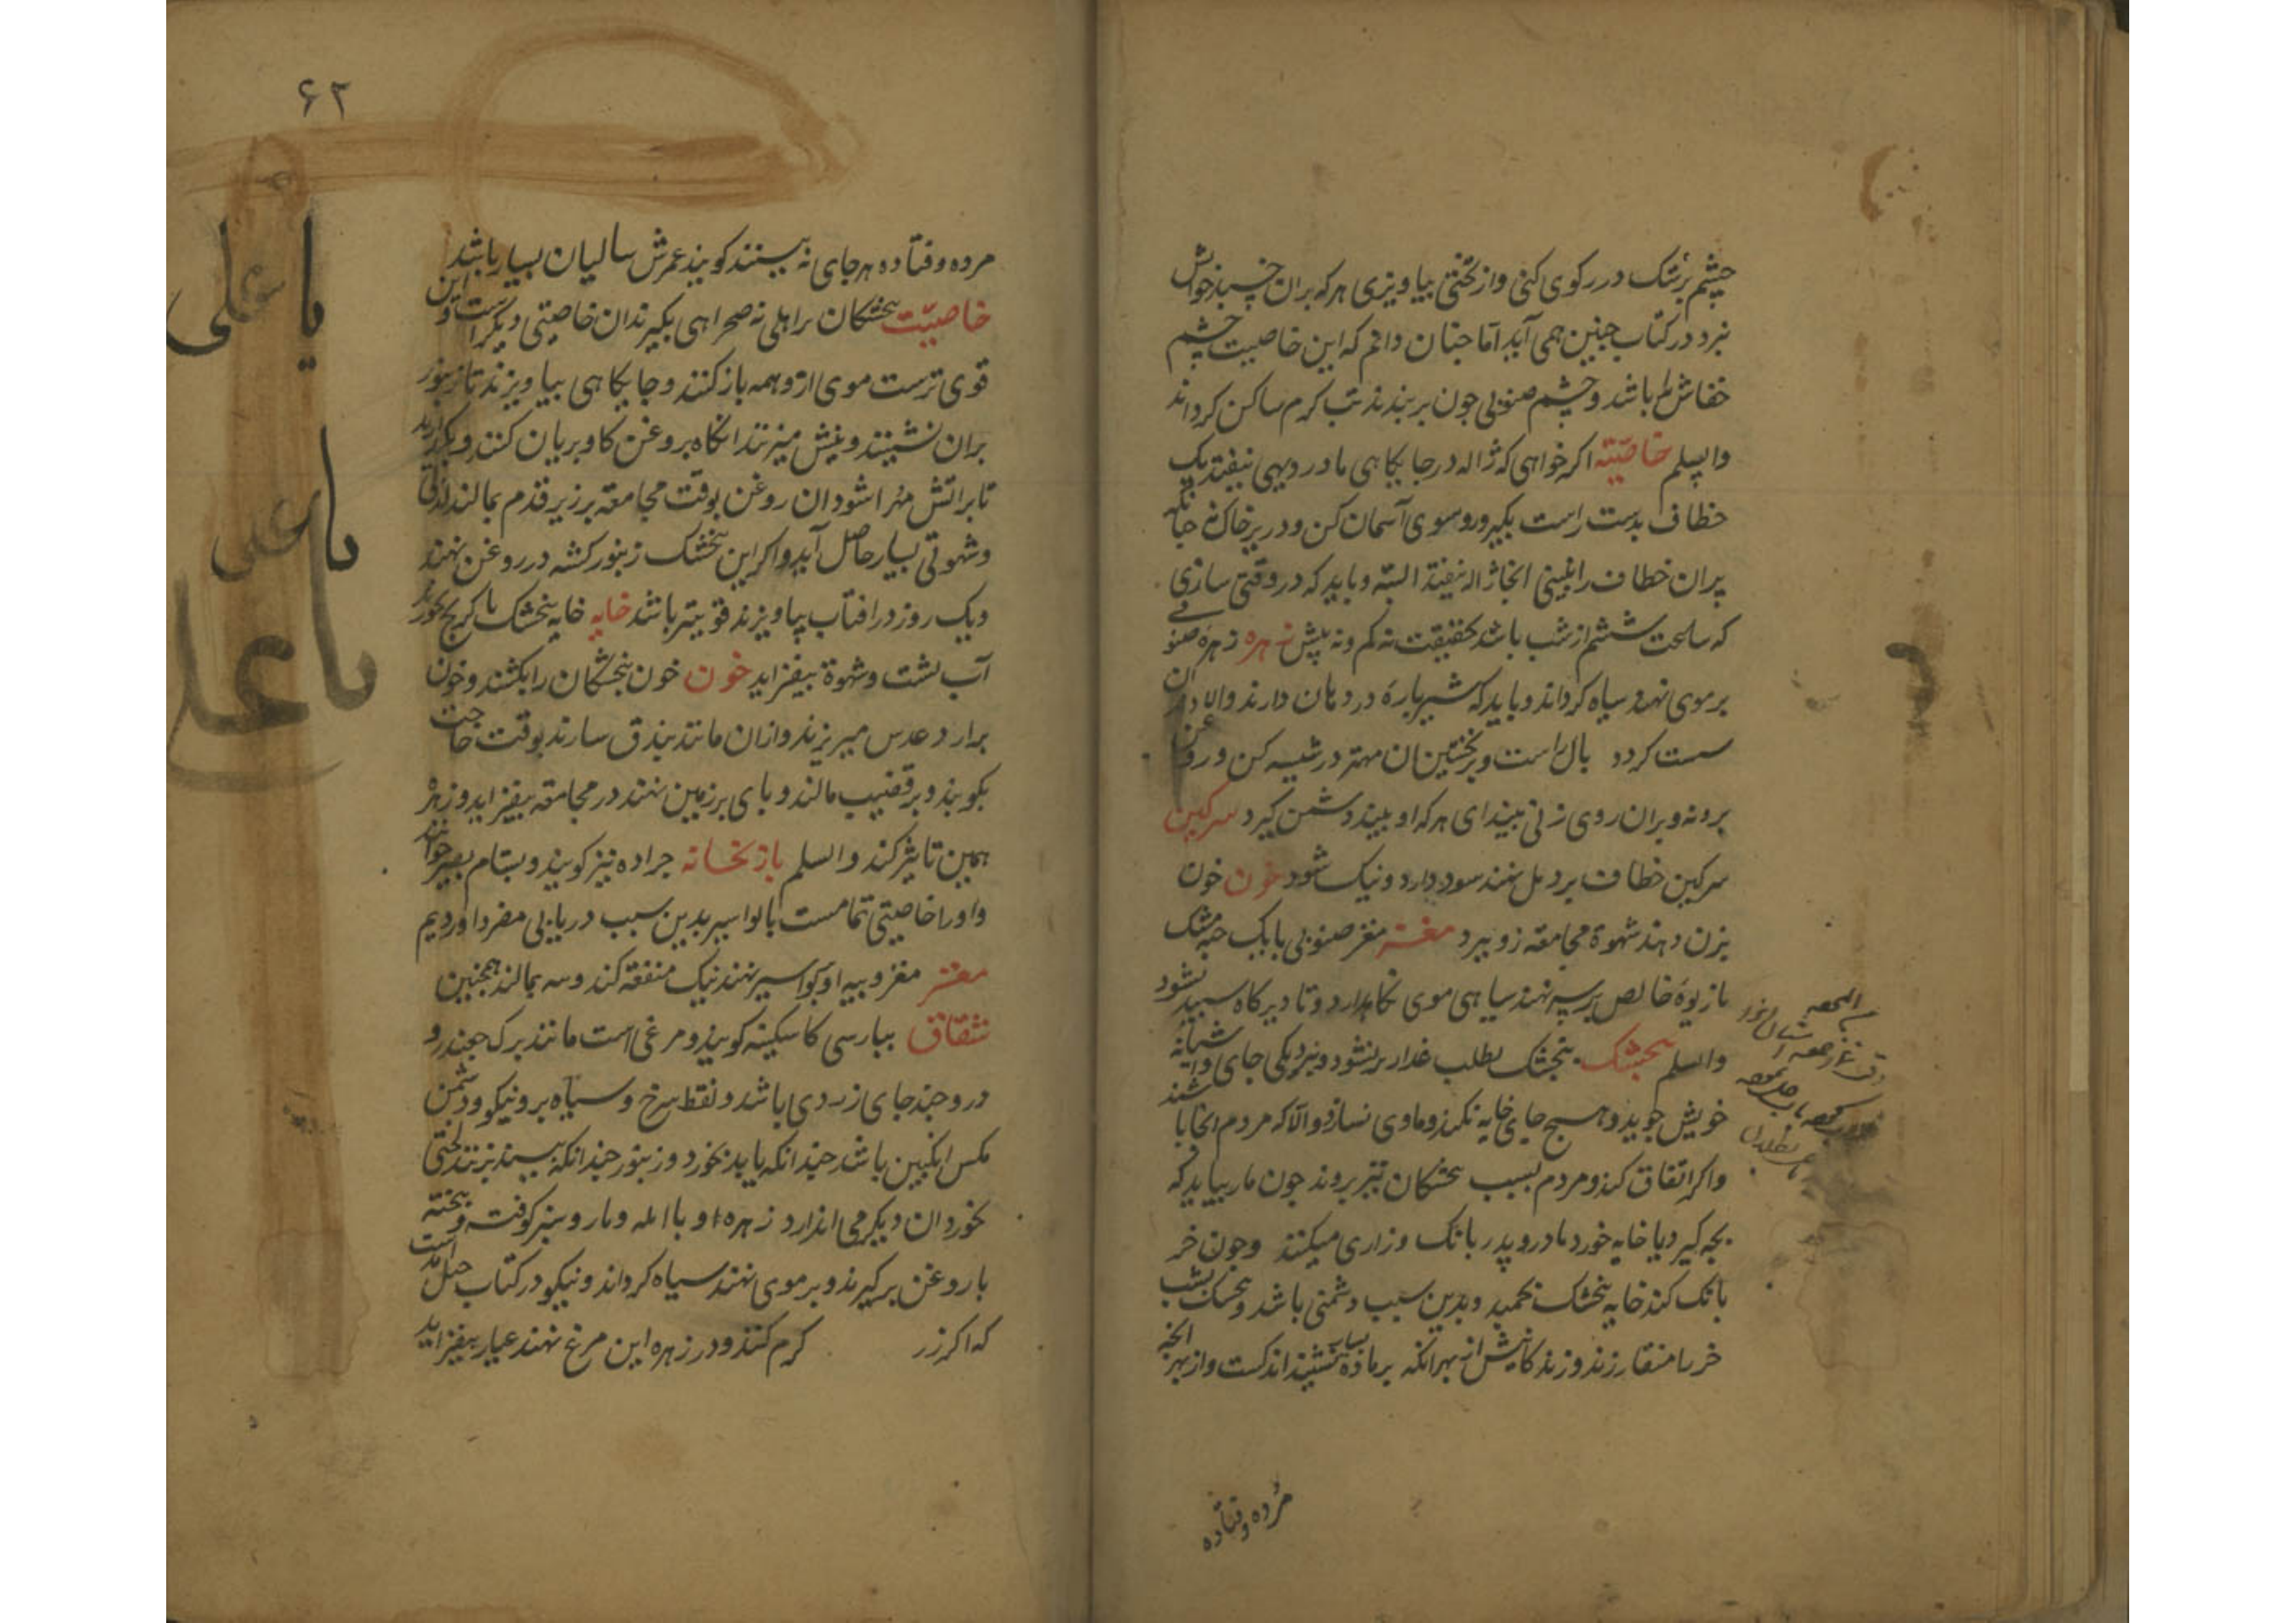 چشم پرستک در رکوی کنی و از تختی بیاویزی هر که بران خسپد خوابش
نبرد در کتاب جنین همی آید اما جنان دانم که این خاصیت چشم
خفاش را باشد و چشم صنوبی جون بربندند تب کرم ساکن کرداند
والسلم خاصیّته اکر خواهی که ژاله در جایکاهی یا در دیهی نیفتد یک
خطاف بدست راست بکیر و رو سوی آسمان کن و در زیر خاک نه جنانکه
پران خطاف را نبینی انجا ژاله نیفتد البته و باید که در وقتی سازی
که ساعت ششم از شب باشد بحقیقت نه کم و نه بیش زهره زهره صنونی
بر موی نهند سیاه کرداند و باید که شیر پاره در دهان دارند والا دندان
سست کردد بال راست و نخستین ان مهتر در شیشه کن و روغن
برو نه و بران روی زنی بیندای هر که او بیند دشمن کیرد سرکین
سرکین خطاف بر دمل نهند سود دارد و نیک شود خون خون
بزن دهند شهوة مجامعه زو ببرد مغز مغز صنوبی با یک حبه مشک
بازیوهٔ خالص بر سر نهند سیاهی موی نکاه دارد و تا دیرکاه سپید نشود
والسلم بنجشک بنجشک بطلب غدا برنشود و نزدیکی جای و آشیانه
خویش جوید و هیچ جای خایه نکند و ماوی نسازد و الا که مردم انجا باشند
و اکر اتفاق کند و مردم بسبب بنجشکان نیز بروند جون مار بیاید که
بچه کیرد یا خایه خورد مادر و پدر بانک و زاری میکنند و جون خر
بانک کند خایه بنجشک بخمید و بدین سبب دشمنی باشد و بنجشک بشب
خر را منقار زند و زندکانیش از بهر انکه بر ماده بسیار نشیند اندکست و از بهر انکه
مرده و فتاده
۶۲
مرده و فتاده هر جای نه بینند کویند عمرش سالیان بسیار باشد
خاصیّت بنجشکان را اهلی نه صحراهی بکیرند ان خاصیتی دیکر است و این
قوی ترست موی ازو همه باز کنند و جایکاهی بیاویزند تا زنبور
بران نشیند و نیش میزنند انکاه بروغن کاو بریان کنند و بکذارند
تا بر آتش مهرا شود ان روغن بوقت مجامعه بر زیر قدم بمالند لذتی
و شهوتی بسیار حاصل آید و اکر این بنجشک زنبور کشه در روغن نهند
و یک روز در افتاب بیاویزند قویتر باشد خایه خایه بنجشک با کرنج بخورند
آب پشت و شهوة بیفزاید خون خون بنجشکان را بکشند و خون
بر ارد عدس میریزند و ازان مانند بندق سازند بوقت حاجت
بکویند و بر قضیب مالند و پای بر زمین نهند در مجامعه بیفزاید و زهره
همین تاثیر کند والسلم بازنخانه جراده نیز کویند و بستام بصیر خوانند
و او را خاصیتی تمامست با بواسیر بدین سبب دریابی مفرد اوردیم
مغز مغز و پیه او بواسیر نهند نیک منفعه کند و سه بمالند همجنین
شقاق ببارسی کاسکینه کویند و مرغی است مانند برک جغندر و
درو جند جای زردی باشد و نقط سرخ و سیاه برو نیکو و دشمن
مکس انکبین باشد جندانکه یابد بخورد و زنبور جندانکه بیند بزند لختی
بخورد ان دیکر می اندازد زهره او با امله و مازو نیز کوفته و بیخته
با روغن برکیرند و بر موی نهند سیاه کرداند و نیکو در کتاب حیل امد است
که اکر زر کرم کنند و در زهره این مرغ نهند عیار بیفزاید
یا علی
یا علی
یا علی